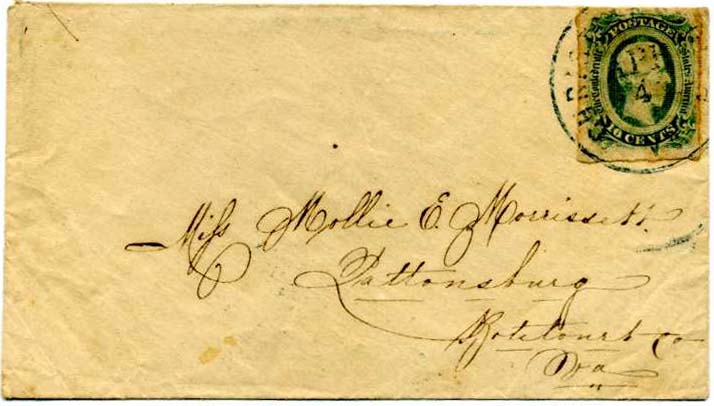 POSTAGE
The Confederate States of America
APR
4
10 CENTS
Miss Mollie E. Morrissett.
Pattonsburg
Botetourt Co
Va